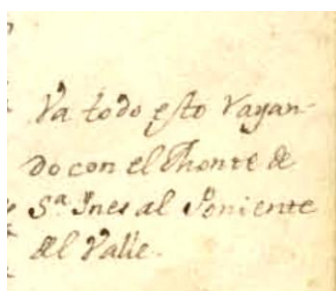 Va todo esto Rayan-
do con el Monte de
S.ª Ines al Poniente
del Valle.